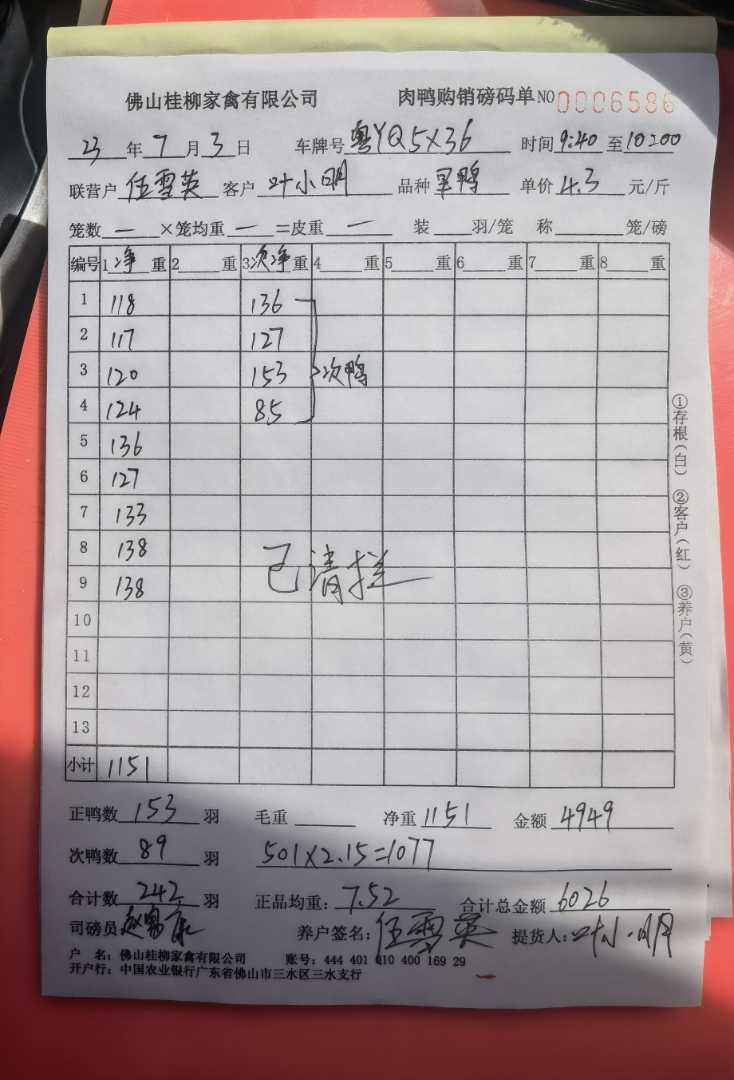 佛山桂柳家禽有限公司 肉鸭购销磅码单 NO 0006586
23 年 7 月 3 日 车牌号 粤YQ5X36 时间 9:40 至 10:00
联营户 伍雪英 客户 叶小明 品种 单价 4.3 元/斤
笼数 一 ×笼均重 一 =皮重 一 装 羽/笼 称 笼/磅
编号 1 净 重 2 重 3 次净 重 4 重 5 重 6 重 7 重 8 重
1 118 136
2 117 127
3 120 153 次鸭
4 124 85
5 136
6 127
7 133
8 138
9 138
已清拦
10
11
12
13
小计 1151
正鸭数 153 羽 毛重 净重 1151 金额 4949
次鸭数 89 羽 501×2.15=1077
合计数 242 羽 正品均重: 7.52 合计总金额 6026
司磅员 养户签名: 伍雪英 提货人: 叶小明
户 名: 佛山桂柳家禽有限公司 账号: 444 401 010 400 169 29
开户行: 中国农业银行广东省佛山市三水区三水支行
①存根(白) ②客户(红) ③养户(黄)